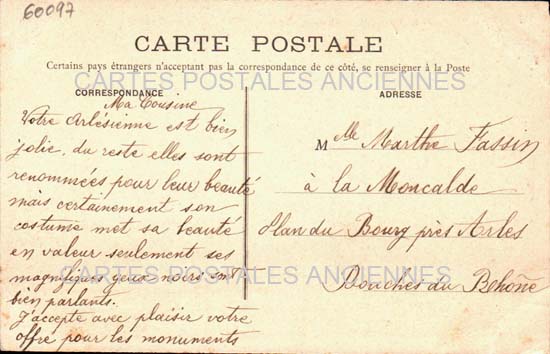 60097
CARTE POSTALE
Certains pays étrangers n'acceptant pas la correspondance de ce côté, se renseigner à la Poste
CARTES POSTALES ANCIENNES
CORRESPONDANCE
Ma Cousine
Votre Arlésienne est bien
jolie, du reste elles sont
renommées pour leur beauté
mais certainement son
costume met sa beauté
en valeur seulement ses
magnifiques yeux noirs sont
bien parlants.
J'accepte avec plaisir votre
offre pour les monuments
ADRESSE
Mlle Marthe Fassin
à la Moncalde
Plan du Bourg près Arles
Bouches du Rhône
CARTES POSTALES ANCIENNES